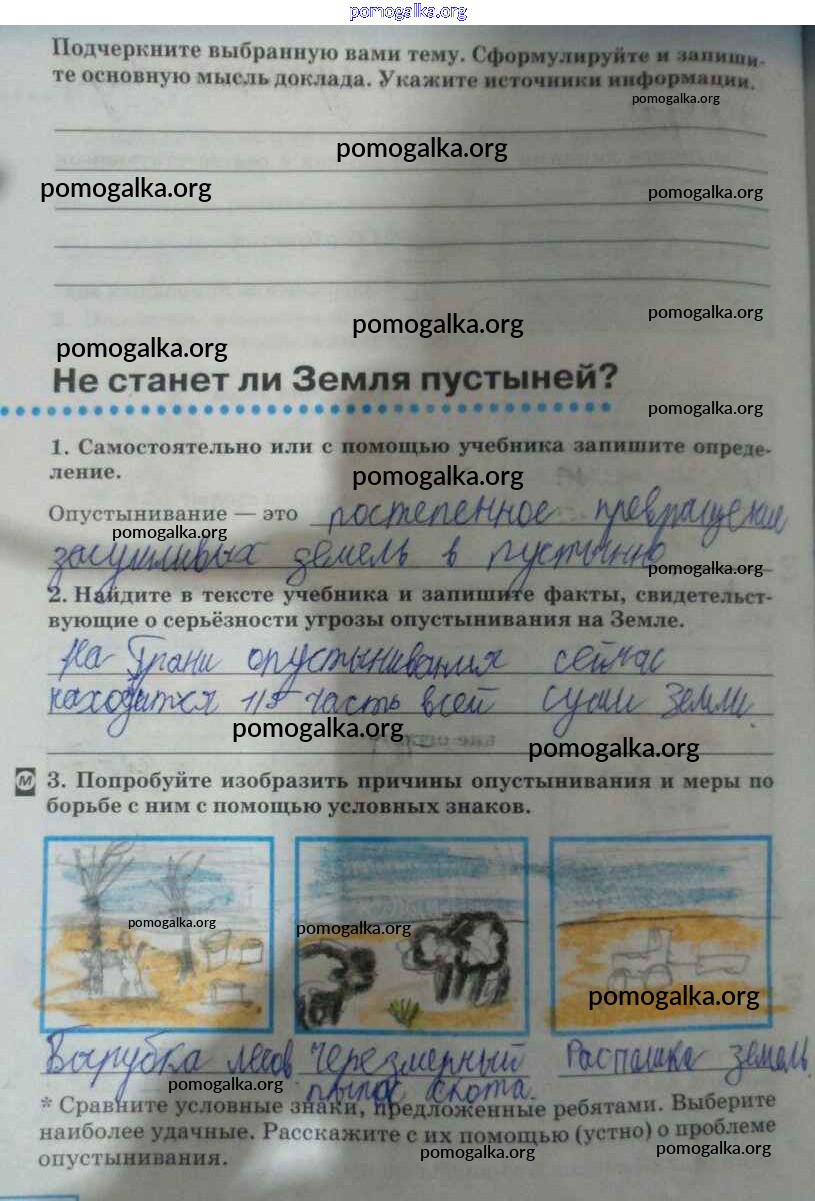 pomogalka.org
Подчеркните выбранную вами тему. Сформулируйте и запиши-
те основную мысль доклада. Укажите источники информации.
pomogalka.org
pomogalka.org
pomogalka.org
pomogalka.org
pomogalka.org
pomogalka.org
pomogalka.org
Не станет ли Земля пустыней?
pomogalka.org
1. Самостоятельно или с помощью учебника запишите опреде-
ление.
pomogalka.org
Опустынивание — это постепенное превращение
pomogalka.org
засушливых земель в пустынно
pomogalka.org
2. Найдите в тексте учебника и запишите факты, свидетельст-
вующие о серьёзности угрозы опустынивания на Земле.
На грани опустынивания сейчас
находится 1/5 часть всей суши Земли.
pomogalka.org
pomogalka.org
М
3. Попробуйте изобразить причины опустынивания и меры по
борьбе с ним с помощью условных знаков.
pomogalka.org
pomogalka.org
pomogalka.org
Вырубка лесов
Черезмерный
скота.
Распашка земель
pomogalka.org
* Сравните условные знаки, предложенные ребятами. Выберите
наиболее удачные. Расскажите с их помощью (устно) о проблеме
опустынивания.
pomogalka.org
pomogalka.org